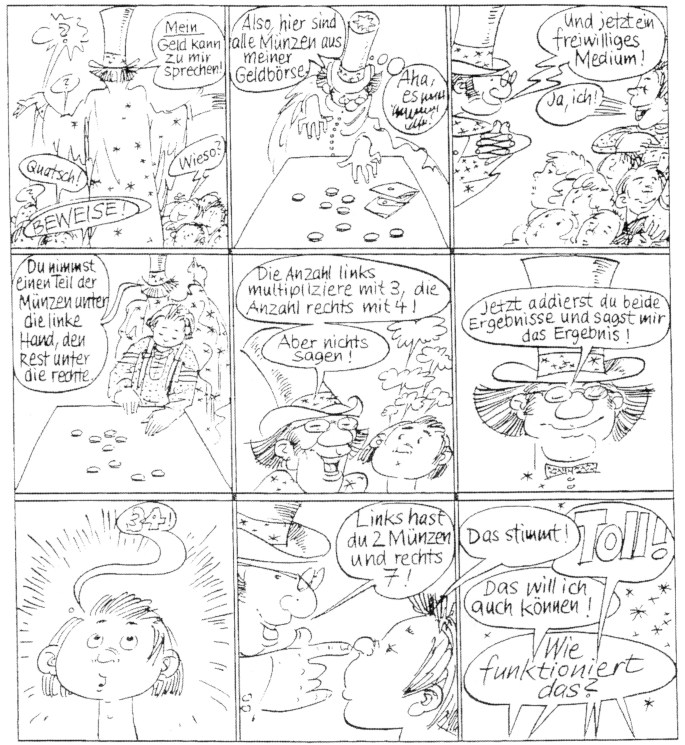 ?
?
Mein
Geld kann
zu mir
sprechen!
Quatsch!
Wieso?
BEWEISE!
Also, hier sind
alle Münzen aus
meiner
Geldbörse.
Aha,
es
Und jetzt ein
freiwilliges
Medium!
Ja, ich!
Du nimmst
einen Teil der
Münzen unter
die linke
Hand, den
Rest unter
die rechte.
Die Anzahl links
multipliziere mit 3, die
Anzahl rechts mit 4!
Aber nichts
sagen!
Jetzt addierst du beide
Ergebnisse und sagst mir
das Ergebnis!
34!
Links hast
du 2 Münzen
und rechts
7!
Das stimmt!
Toll!
Das will ich
auch können!
Wie
funktioniert
das?